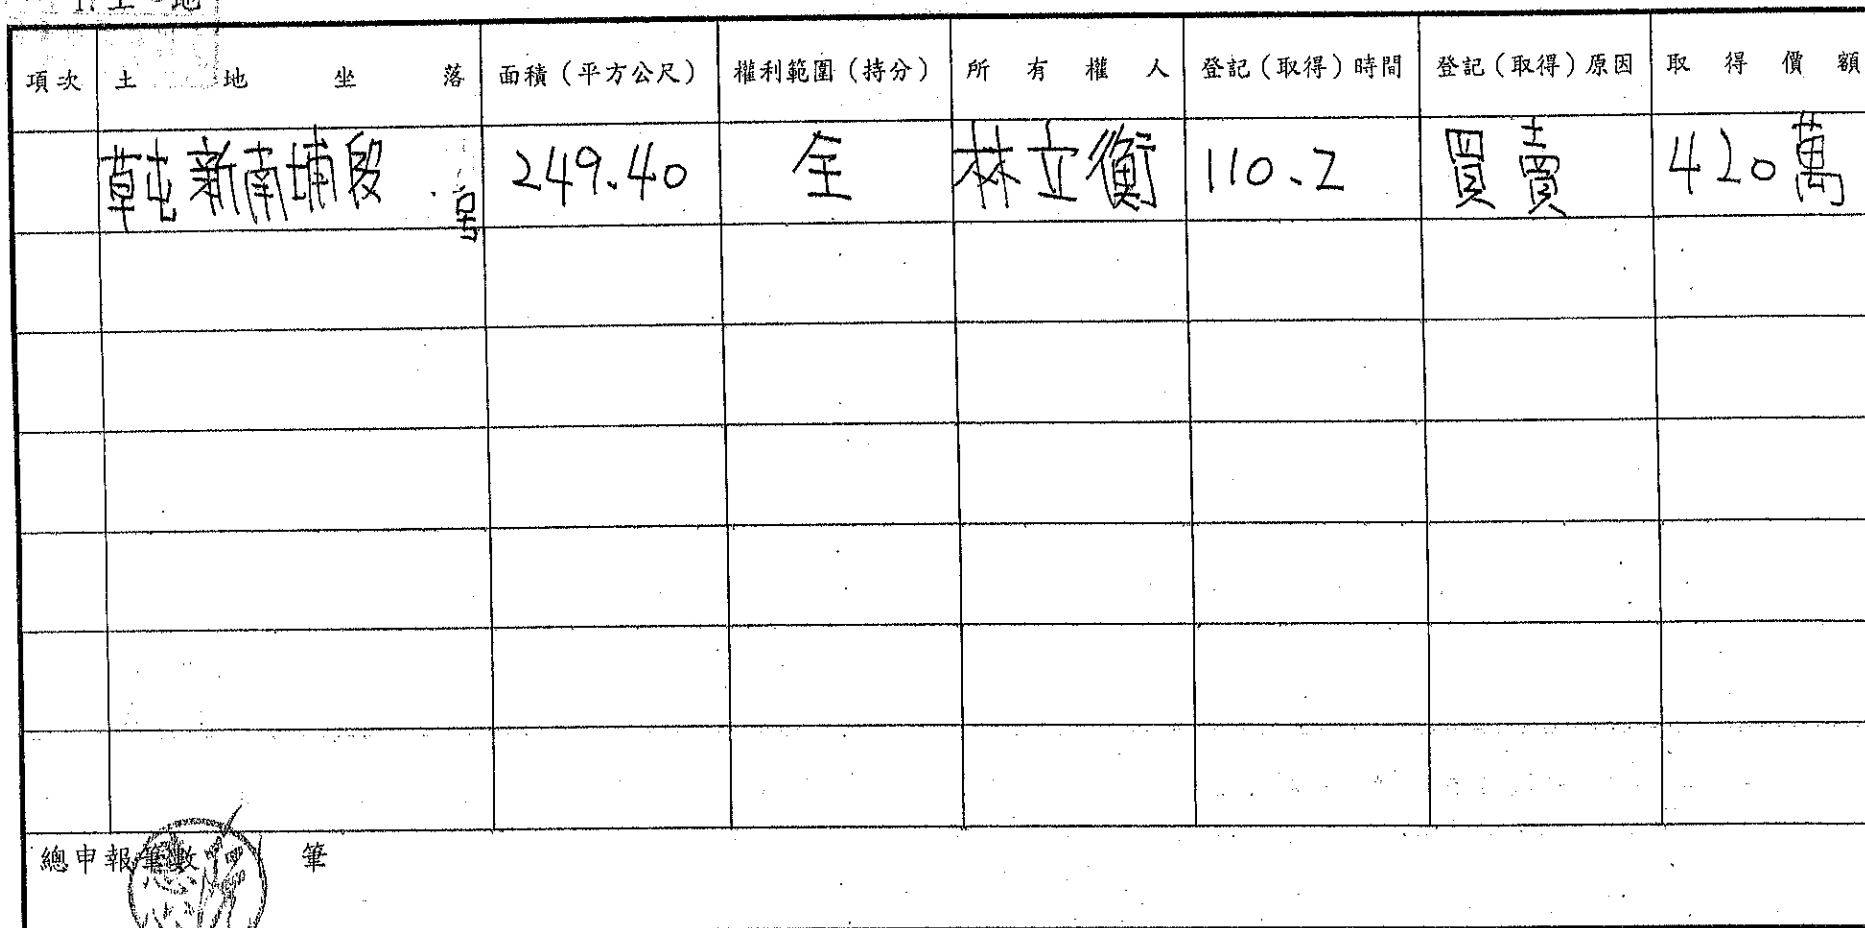 土地
項次 土地坐落 面積（平方公尺） 權利範圍（持分） 所有權人 登記（取得）時間 登記（取得）原因 取得價額
草屯新南埔段 號 249.40 全 林立衡 110.2 買賣 420萬
總申報筆數 1 筆